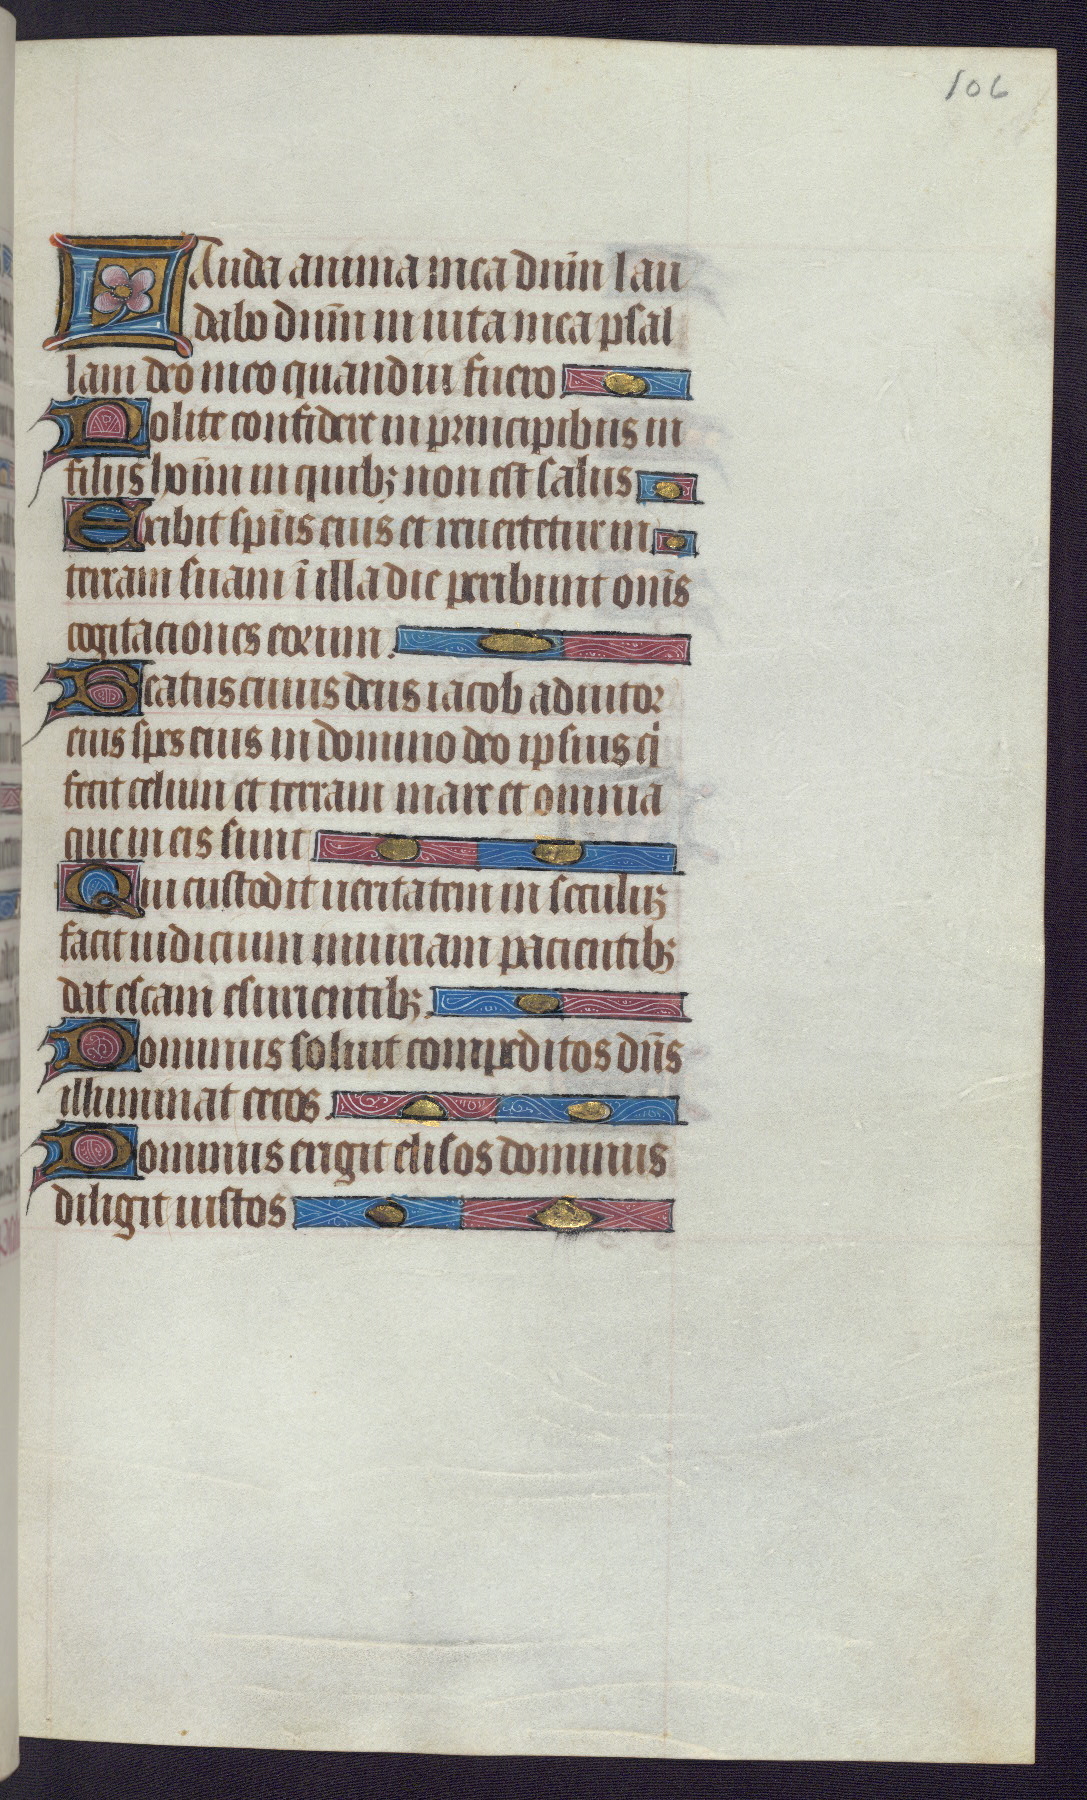 106
Lauda anima mea dnm̄ lau
dabo dnm̄ in uita mea psal
lam deo meo quandiu fuero
Nolite confidere in principibus in
filijs hoīm in quibꝫ non est salus
Exibit spūs eius et reuertetur in
terram suam ī illa die peribunt om̄s
cogitaciones eorum.
Beatus cuius deus iacob adiutor
eius spes eius in domino deo ipsius q̇
fecit celum et terram mare et omnia
que in eis sunt
Qui custodit ueritatem in seculuꝫ
facit iudicium iniuriam pacientibꝫ
dat escam esurientibꝫ.
Dominus soluit compeditos dn̄s
illuminat cecos.
Dominus erigit elisos dominus
diligit iustos